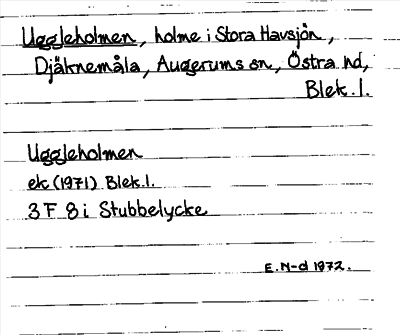 Uggleholmen, holme i Stora Havsjön,
Djäknemåla, Augerums sn, Östra hd,
Blek. l.
Uggleholmen
ek (1971) Blek. l.
3 F 8 i Stubbelycke
E. N-d 1972.